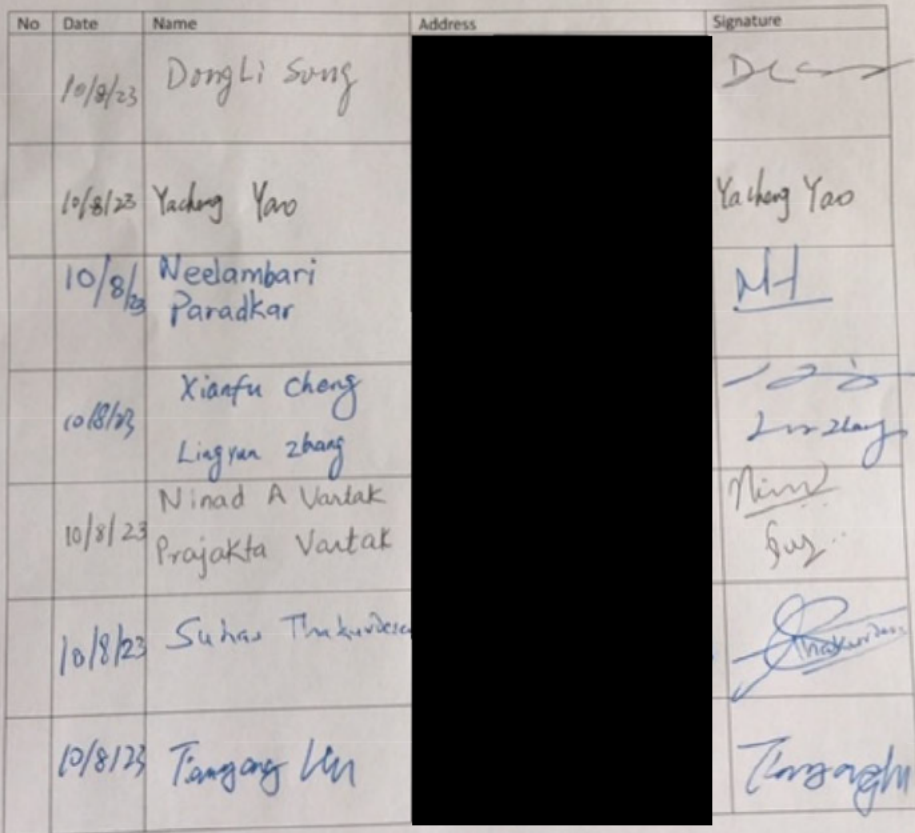 No Date Name Address Signature
10/8/23 DongLi Song
10/8/23 Yacheng Yao Yacheng Yao
10/8/23 Neelambari
Paradkar
10/8/23 Xianfu Cheng
Lingyun Zhang
10/8/23 Ninad A Vartak
Prajakta Vartak
10/8/23 Suhas Thakurdesai Thakurdesai
10/8/23